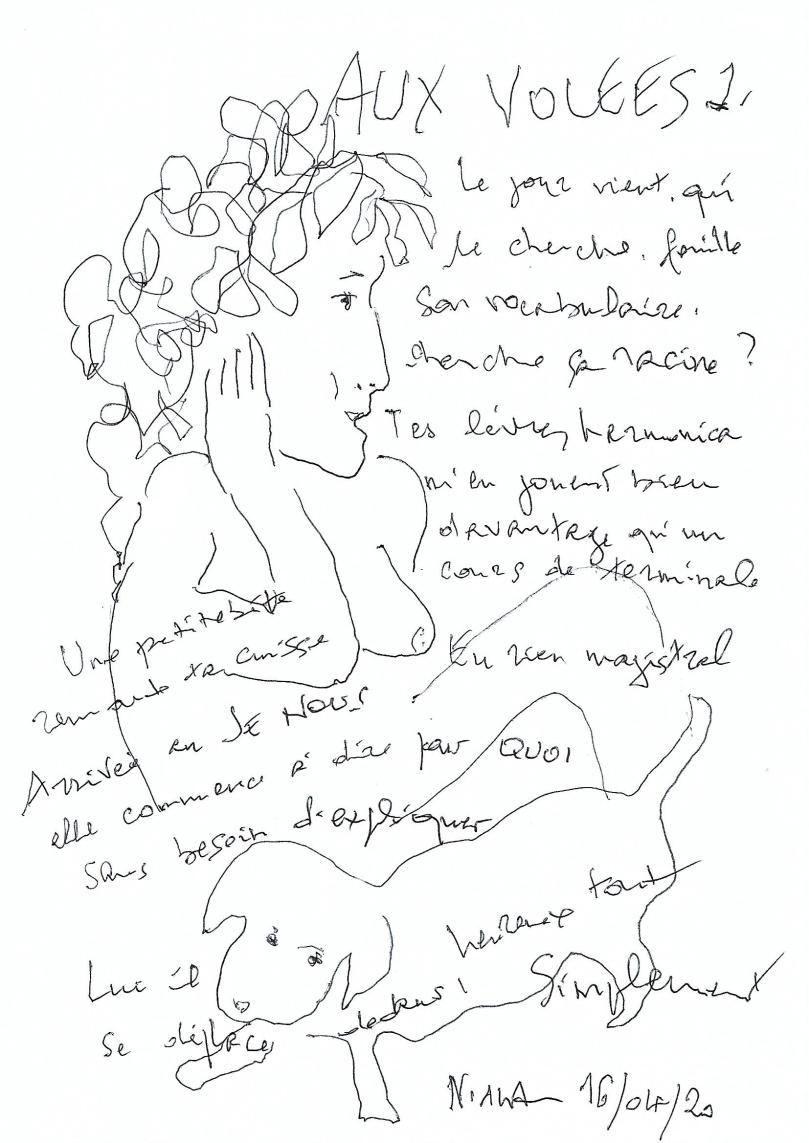 AUX VOLÉES 2.
Le jour vient, qui
le cherche, fouille
son vocabulaire,
cherche sa racine ?
Tes lèvres harmonica
m'en jouent bien
davantage qu'un
cours de terminale
En rien magistral
Une petite bête
remonte ta cuisse
Arrivée en JE NOUS
elle commence à dire par QUOI
sans besoin d'expliquer
Lui il
se déplace
dedans !
heureux tout
Simplement
NIALA 16/04/20